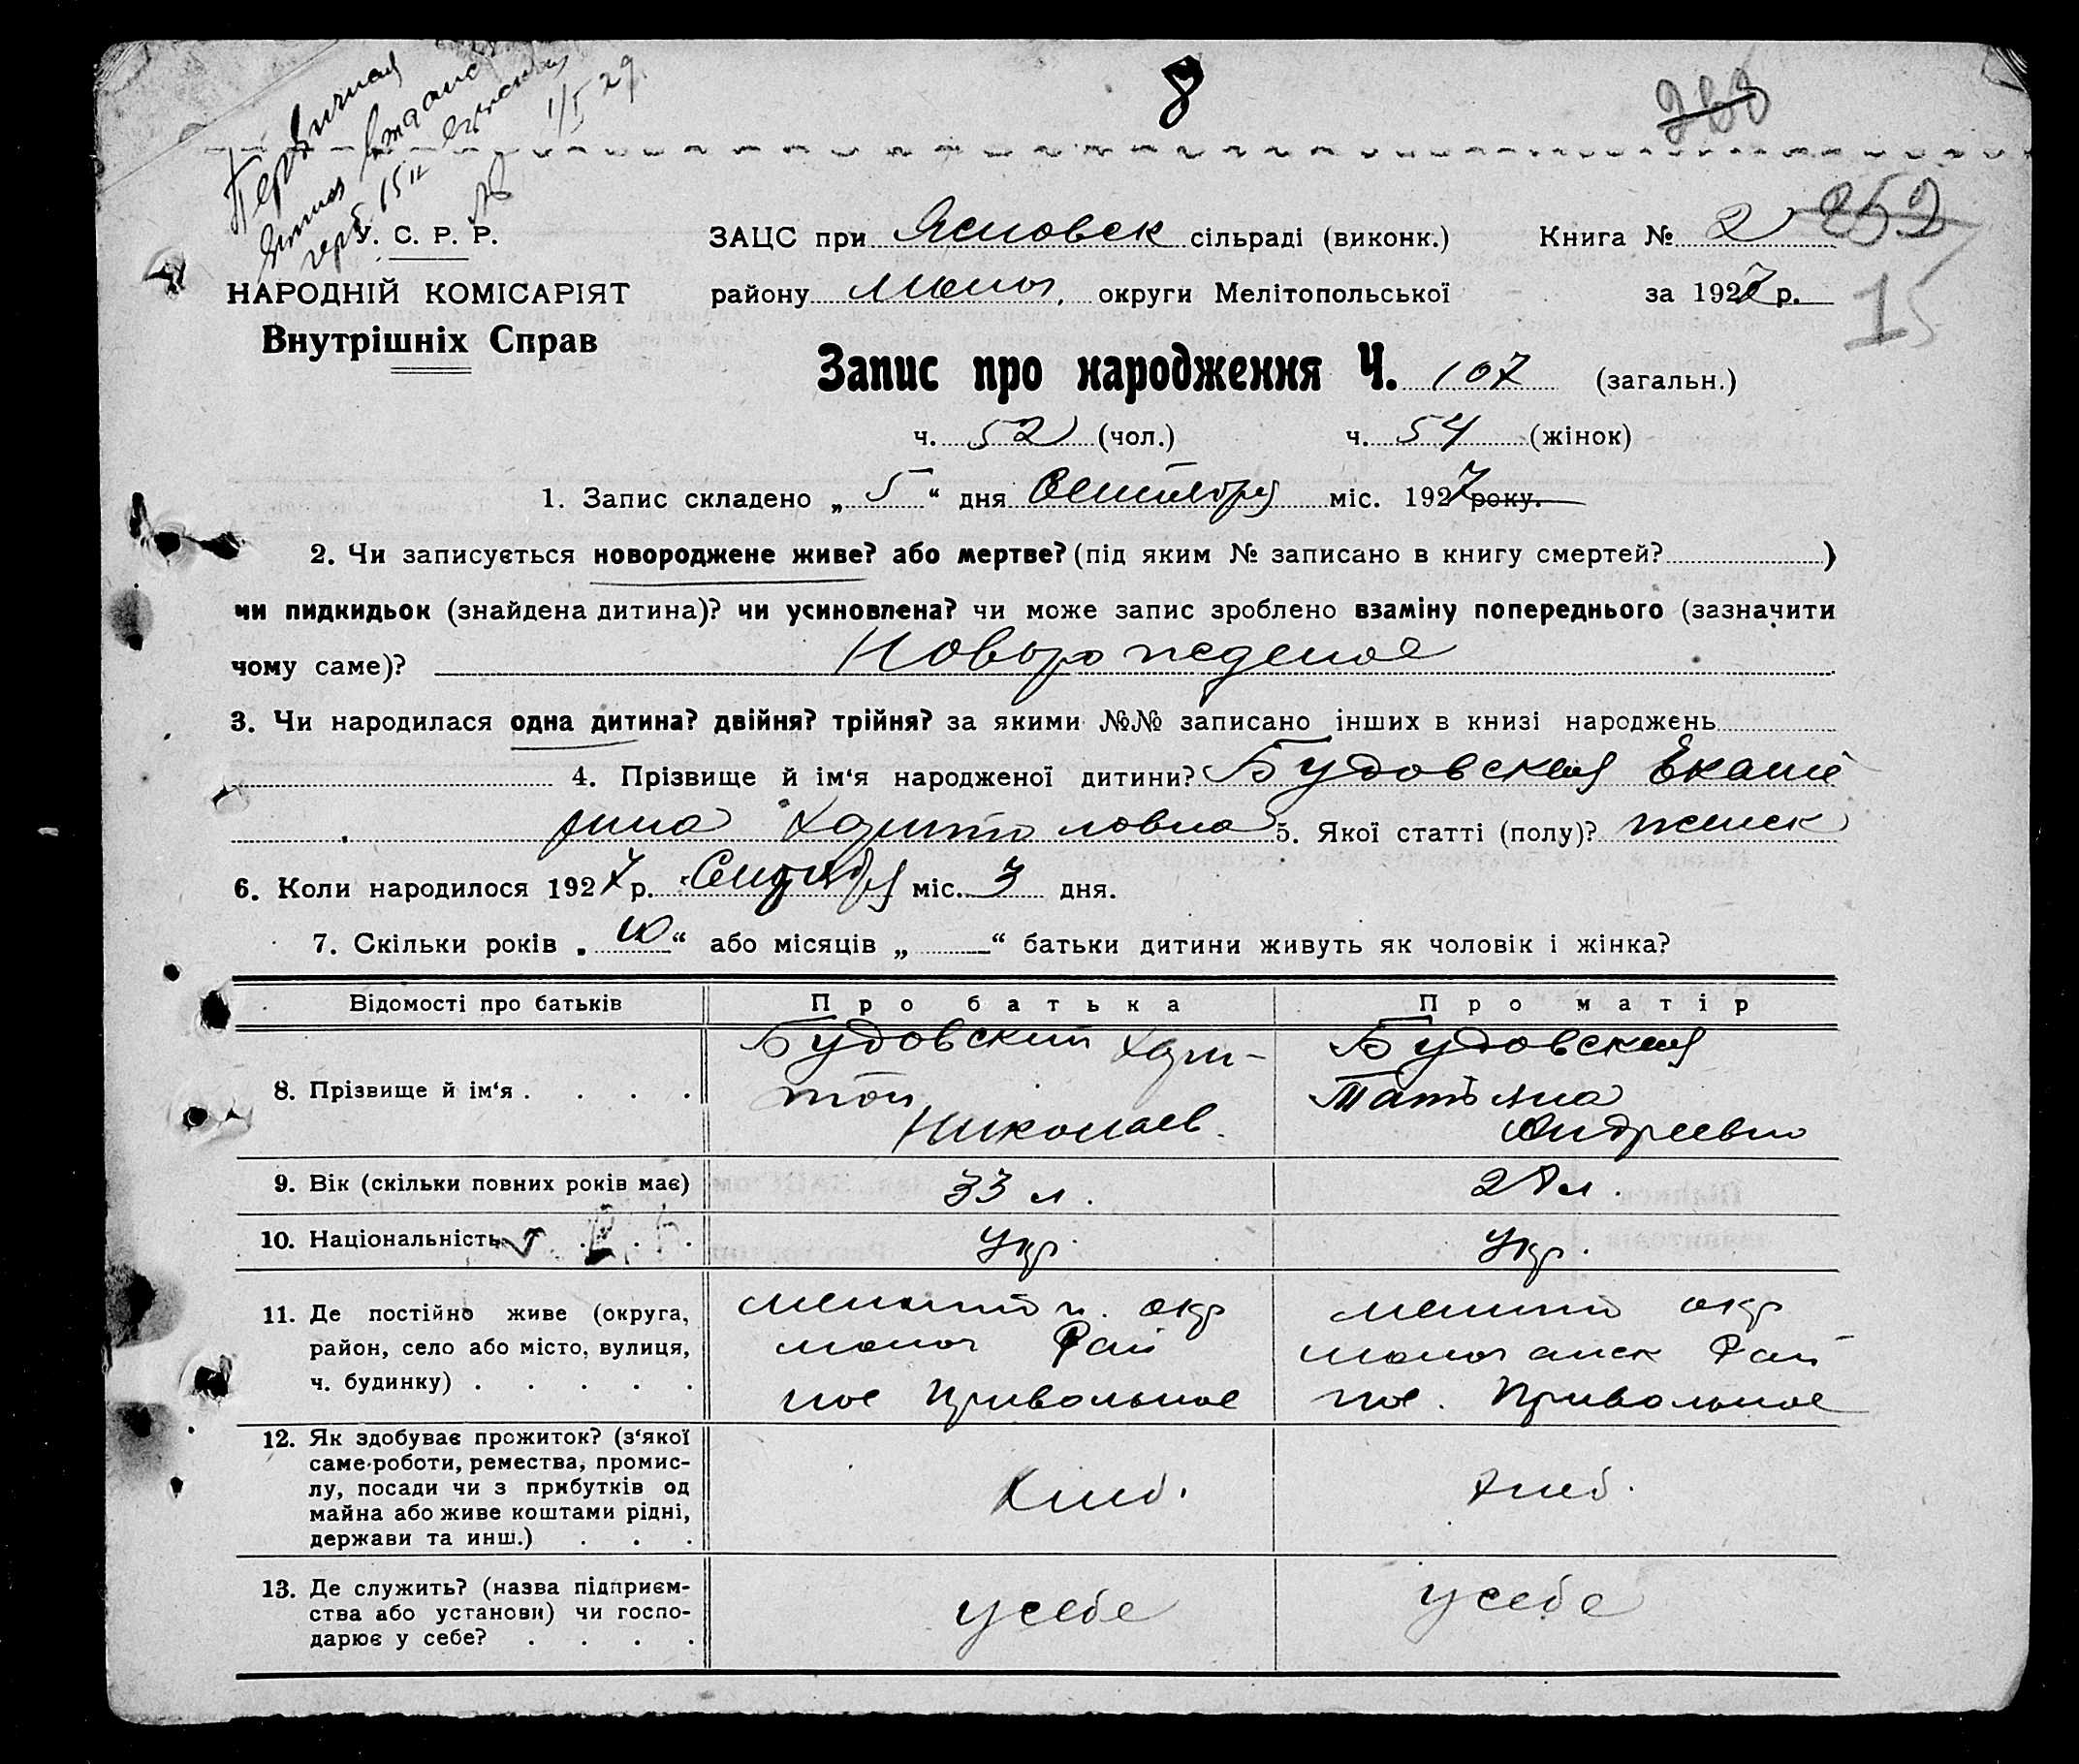 Первичная
8
288
1/V 29.
252
У. С. Р. Р.
ЗАЦС при Ясновск сільраді (виконк.)
Книга № 2
15
НАРОДНІЙ КОМІСАРІЯТ
Внутрішніх Справ
району Молоч. округи Мелітопольської
за 1927 р.
Запис про народження Ч. 107 (загальн.)
ч. 52 (чол.) ч. 54 (жінок)
1. Запис складено „ 5 “ дня Сентября міс. 1927 року.
2. Чи записується новороджене живе? або мертве? (під яким № записано в книгу смертей? )
чи пидкидьок (знайдена дитина)? чи усиновлена? чи може запис зроблено взаміну попереднього (зазначити
чому саме)? Новорожденое
3. Чи народилася одна дитина? двійня? трійня? за якими №№ записано інших в книзі народжень
4. Прізвище й ім‘я народженої дитини? Будовская Екате
рина Харитоновна 5. Якої статті (полу)? женск
6. Коли народилося 1927 р. Сентября міс. 3 дня.
7. Скільки років „ 10 “ або місяців „ “ батьки дитини живуть як чоловік і жінка?
Відомості про батьків Про батька Про матір
8. Прізвище й ім‘я
Будовский Хари-
тон
Николаев.
Будовская
Татьяна
Андреевна
9. Вік (скільки повних років має) 33 л. 27 л.
10. Національність Укр. Укр.
11. Де постійно живе (округа,
район, село або місто, вулиця,
ч. будинку)
Мелитоп. окр
Молоч Рай
пос Привольное
Мелито окр
Молочанск Рай
пос. Привольное
12. Як здобуває прожиток? (з‘якої
саме роботи, ремества, промис-
лу, посади чи з прибутків од
майна або живе коштами рідні,
держави та инш.)
Хлеб.
Хлеб.
13. Де служить? (назва підприєм-
ства або установи) чи госпо-
дарює у себе?
у себе
у себе